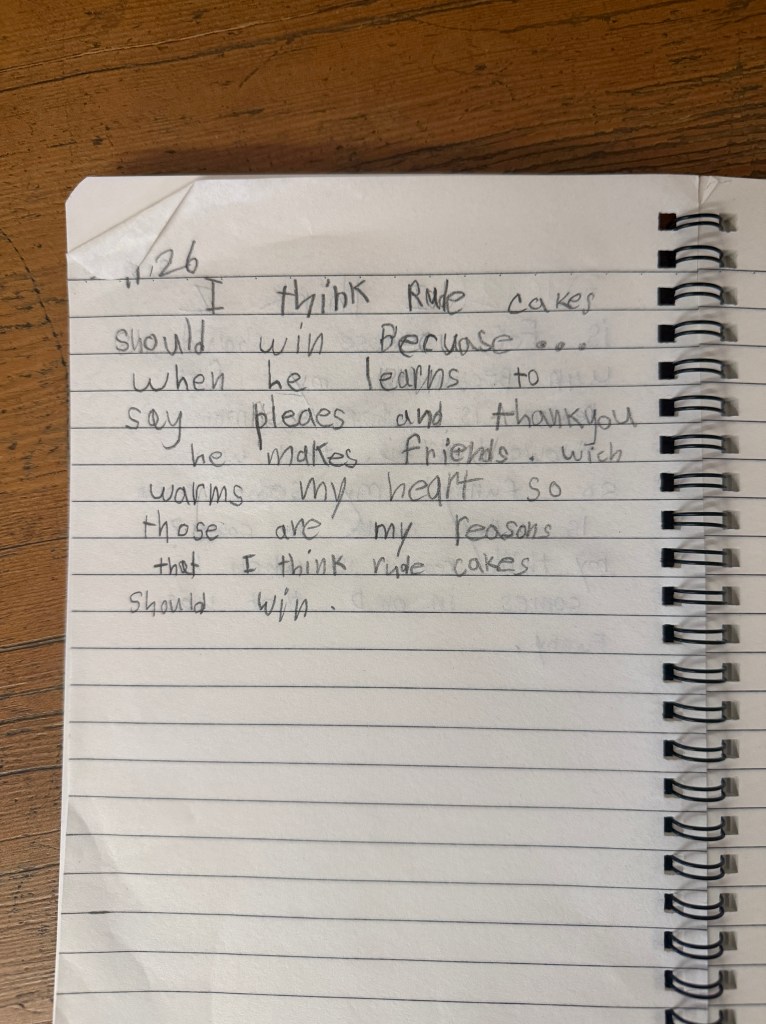 11.26
I think Rude cakes
should win Becuase...
when he learns to
say pleaes and thankyou
he makes friends. wich
warms my heart so
those are my reasons
that I think rude cakes
should win.